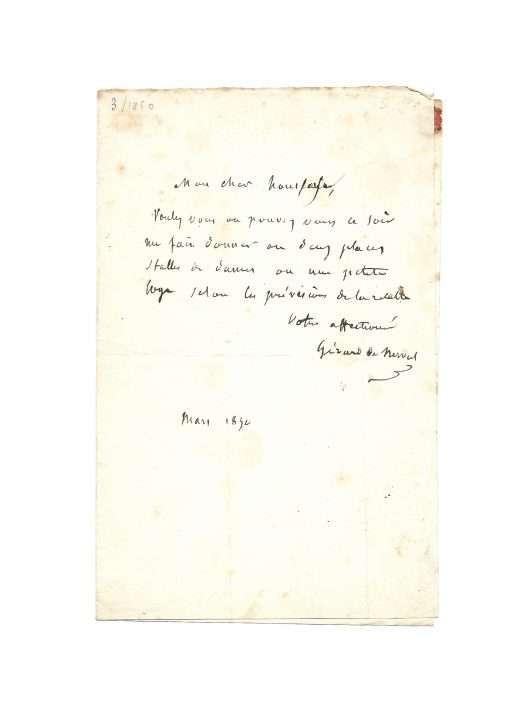 3/1850
Mon cher Houssaye,
Voulez vous ou pouvez vous ce soir
me faire donner ou deux places
stalles de dames ou une petite
loge selon les prévisions de la
Votre affectionné
Gérard de Nerval
Mars 1850